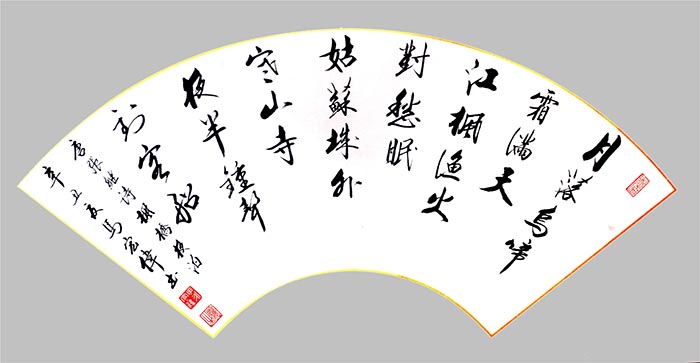 月落烏啼
霜滿天
江楓漁火
對愁眠
姑蘇城外
寒山寺
夜半鍾聲
到客船
唐張繼詩楓橋夜泊
辛丑夏馬宏偉书